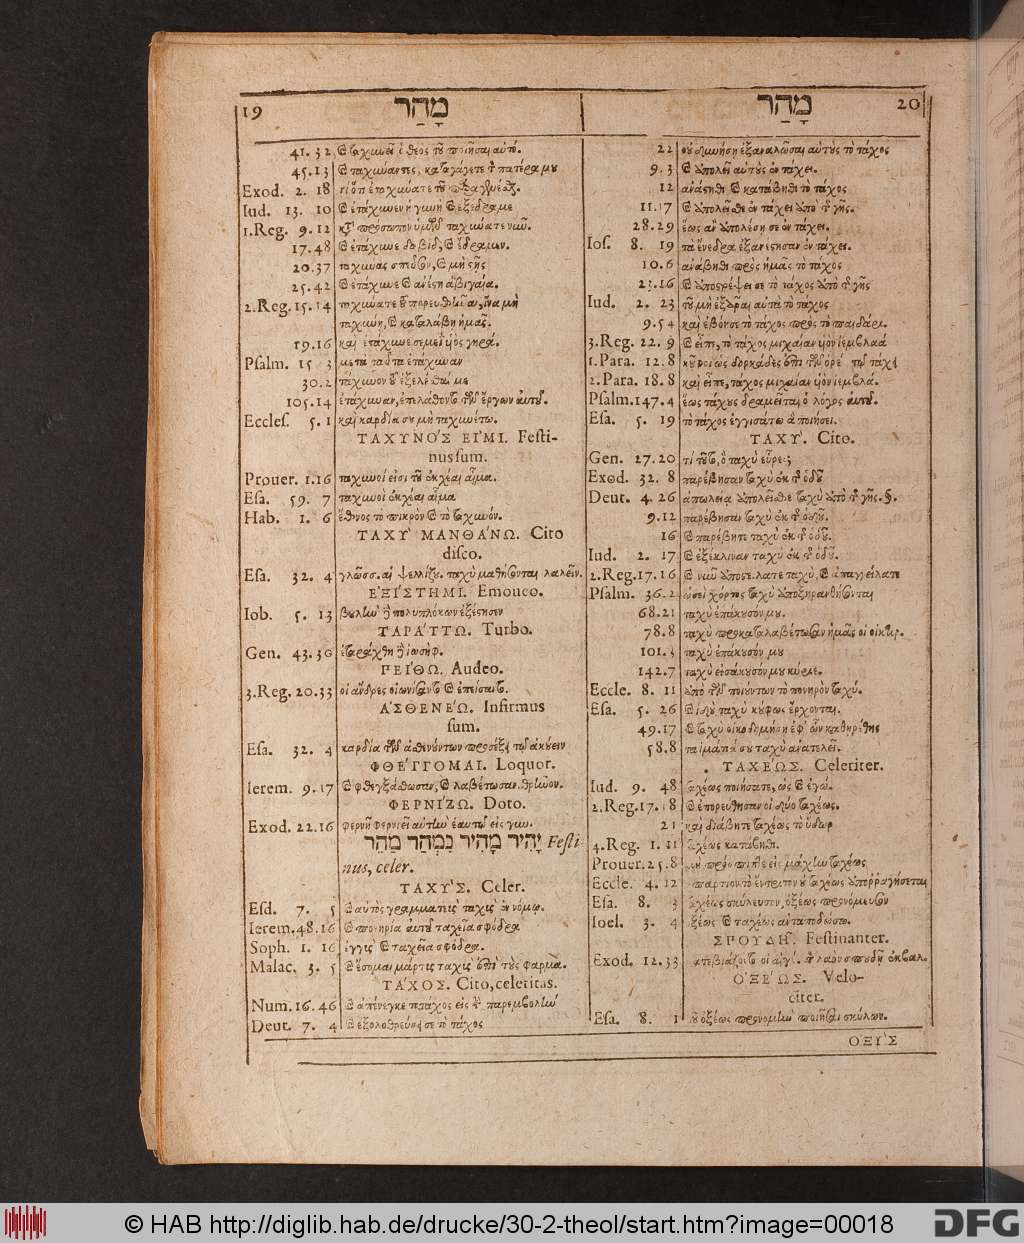 19 מָהַר
41.32 ταχυνεῖ ὁ θεὸς τοῦ ποιῆσαι αὐτό.
45.13 ταχύναντες, καταγάγετε τ πατέρα μου
Exod. 2. 18 τί ὅτι ἐταχύνατε τοῦ
Iud. 13. 10 ἐτάχυνεν ἡ γυνὴ ἐξέδραμε
1.Reg. 9.12
17.48 ἐτάχυνε δαβὶδ, ἔδραμεν.
20.37 ταχύνας σπεῦσον, μὴ στῇς
25.42 ἐτάχυνε ἀνέστη ἀβιγαία.
2.Reg.15.14 ταχύνατε τοῦ πορευθῆναι, ἵνα μὴ
ταχύνῃ, καταλάβῃ ἡμᾶς.
19.16 καὶ ἐτάχυνε σεμεῒ υἱὸς γηρά.
Psalm. 15 3 μετὰ ταῦτα ἐτάχυναν
30.2 τάχυνον τοῦ ἐξελέσθαι με
105.14 ἐτάχυναν, ἐπελάθοντο τῶν ἔργων αὐτοῦ.
Eccles. 5.1 καὶ καρδία σου μὴ ταχυνέτω.
ΤΑΧΥΝΟΣ ΕΙΜΙ. Festi-
nus sum.
Prouer. 1.16 ταχινοί εἰσι τοῦ ἐκχέαι αἷμα.
Esa. 59. 7 ταχινοὶ ἐκχέαι αἷμα
Hab. 1. 6 ἔθνος τὸ πικρὸν τὸ ταχινόν.
ΤΑΧΥ ΜΑΝΘΑΝΩ. Cito
disco.
Esa. 32. 4 ταχὺ μαθήσονται λαλεῖν.
ΕΞΙΣΤΗΜΙ. Emoueo.
Iob. 5. 13 βουλὴν πολυπλόκων ἐξέστησεν
ΤΑΡΑΤΤΩ. Turbo.
Gen. 43.30 ἐταράχθη ἰωσήφ.
ΡΕΙΘΩ. Audeo.
3.Reg.20.33 οἱ ἄνδρες οἰωνίσαντο
ΑΣΘΕΝΕΩ. Infirmus
sum.
Esa. 32. 4 καρδία τῶν ἀσθενούντων προσέξει τοῦ ἀκούειν
ΦΘΕΓΓΟΜΑΙ. Loquor.
Ierem. 9.17 φθεγξάσθωσαν, λαβέτωσαν θρῆνον.
ΦΕΡΝΙΖΩ. Doto.
Exod. 22.16 φερνῇ φερνιεῖ αὐτὴν ἑαυτῷ εἰς γυν.
יָהִיר מָהִיר נִמְהַר מַהֵר Festi
nus, celer.
ΤΑΧΥΣ. Celer.
Esd. 7. 5 αὐτὸς γραμματεὺς ταχὺς ἐν νόμῳ.
Ierem.48.16 πονηρία αὐτοῦ ταχεῖα σφόδρα
Soph. 1. 16 ἐγγὺς ταχεῖα σφόδρα.
Malac. 3. 5 ἔσομαι μάρτυς ταχὺς ἐπὶ τὰς φαρμα.
ΤΑΧΟΣ. Cito, celeritas.
Num.16.46 ἀπένεγκε τὸ τάχος εἰς τ παρεμβολὴν
Deut. 7. 4 ἐξολοθρεύσει σε τὸ τάχος
מָהַר 20
22 οὐ δυνήσῃ ἐξαναλῶσαι αὐτοὺς τὸ τάχος
9.3 ἀπολεῖ αὐτοὺς ἐν τάχει.
12 ἀνάστηθι κατάβηθι τὸ τάχος
11.17 ἀπολεῖσθε ἐν τάχει ἀπὸ τ γῆς.
28.29 ἕως ἂν ἀπολέσῃ σε ἐν τάχει.
Ios. 8. 19 τὰ ἔνεδρα ἐξανέστησαν ἐν τάχει.
10.6 ἀνάβηθι πρὸς ἡμᾶς τὸ τάχος
23.16 τὸ τάχος ἀπὸ τ γῆς
Iud. 2. 23 τοῦ μὴ ἐξᾶραι αὐτὰ τὸ τάχος
9.54 καὶ ἐβόησε τὸ τάχος πρὸς τὸ παιδάρι.
3.Reg. 22. 9 εἶπε, τὸ τάχος μιχαίαν υἱὸν ἰεμβλαά
1.Para. 12.8
2.Para. 18.8 καὶ εἶπε, τάχος μιχαίαν υἱὸν ἰεμβλα.
Psalm.147.4 ἕως τάχους δραμεῖται ὁ λόγος αὐτοῦ.
Esa. 5. 19 τὸ τάχος ἐγγισάτω ἃ ποιήσει.
ΤΑΧΥ. Cito.
Gen. 27.20 τί τοῦτο, ὃ ταχὺ εὗρες;
Exod. 32. 8 παρέβησαν ταχὺ ἐκ τ ὁδοῦ
Deut. 4. 26 ἀπωλείᾳ ἀπολεῖσθε ταχὺ ἀπὸ τ γῆς. §.
9.12 παρέβησαν ταχὺ ἐκ τ ὁδοῦ.
16 παρέβητε ταχὺ ἐκ τ ὁδοῦ.
Iud. 2. 17 ἐξέκλιναν ταχὺ ἐκ τ ὁδοῦ.
2.Reg.17.16 νῦν ἀποστείλατε ταχὺ, ἀπαγγείλατε
Psalm. 36.2 ὡσεὶ χόρτος ταχὺ ἀποξηρανθήσονται
68.21 ταχὺ ἐπάκουσόν μου.
78.8 ταχὺ προκαταλαβέτωσαν ἡμᾶς οἱ οἰκτιρ.
101.3 ταχὺ ἐπάκουσόν μου
142.7 ταχὺ εἰσάκουσόν μου κύριε.
Eccle. 8. 11 ἀπὸ τῶν ποιούντων τὸ πονηρὸν ταχύ.
Esa. 5. 26 ἰδοὺ ταχὺ κούφως ἔρχονται.
49.17 ταχὺ οἰκοδομήσῃ ἐφ' ὧν καθῃρέθης
58.8 τὰ ἰάματά σου ταχὺ ἀνατελεῖ.
ΤΑΧΕΩΣ. Celeriter.
Iud. 9. 48 ταχέως ποιήσατε, ὡς ἐγώ.
2.Reg.17.18 ἐπορεύθησαν οἱ δύο ταχέως.
21 καὶ διάβητε ταχέως τὸ ὕδωρ
4.Reg. 1.11 ταχέως κατάβηθι.
Prouer.25.8 μὴ πρόσπιπτε εἰς μάχην ταχέως
Eccle. 4. 12 σπαρτίον τὸ ἔντριτον οὐ ταχέως ἀπορραγήσεται
Esa. 8. 3 ταχέως σκύλευσον, ὀξέως προνόμευσον
Ioel. 3. 4 ὀξέως ταχέως ἀνταποδώσω.
ΣΡΟΥΔΗ. Festinanter.
Exod. 12.33 κατεβιάζοντο οἱ αἰγύ. τ λαὸν σπουδῇ ἐκβαλ.
ΟΞΕΩΣ. Velo-
citer.
Esa. 8. 1 τοῦ ὀξέως προνομὴν ποιῆσαι σκύλων.
ΟΞΥΣ
© HAB http://diglib.hab.de/drucke/30-2-theol/start.htm?image=00018
DFG